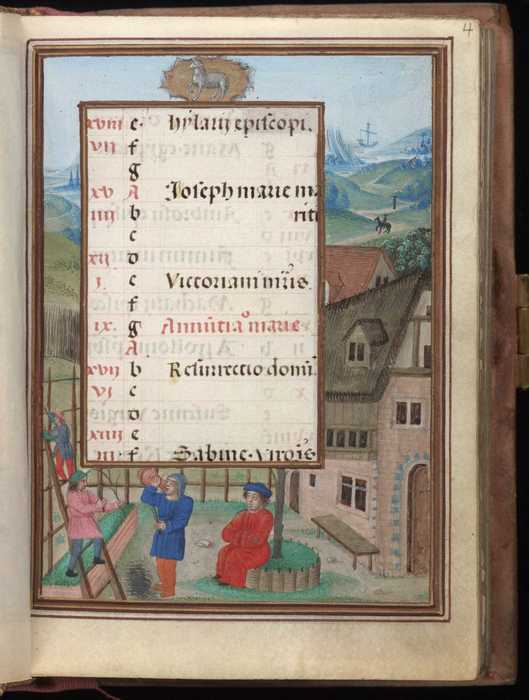 4
xviii e hylarii episcopi.
vii f
g
xv A Joseph marie ma
iiii b riti
c
xii d
i. e Victoriani mris.
f
ix. g Annūtiaº marie
A
xvii b Resurrectio domi.
vi c
d
xiiii e
iii f Sabine. virgis